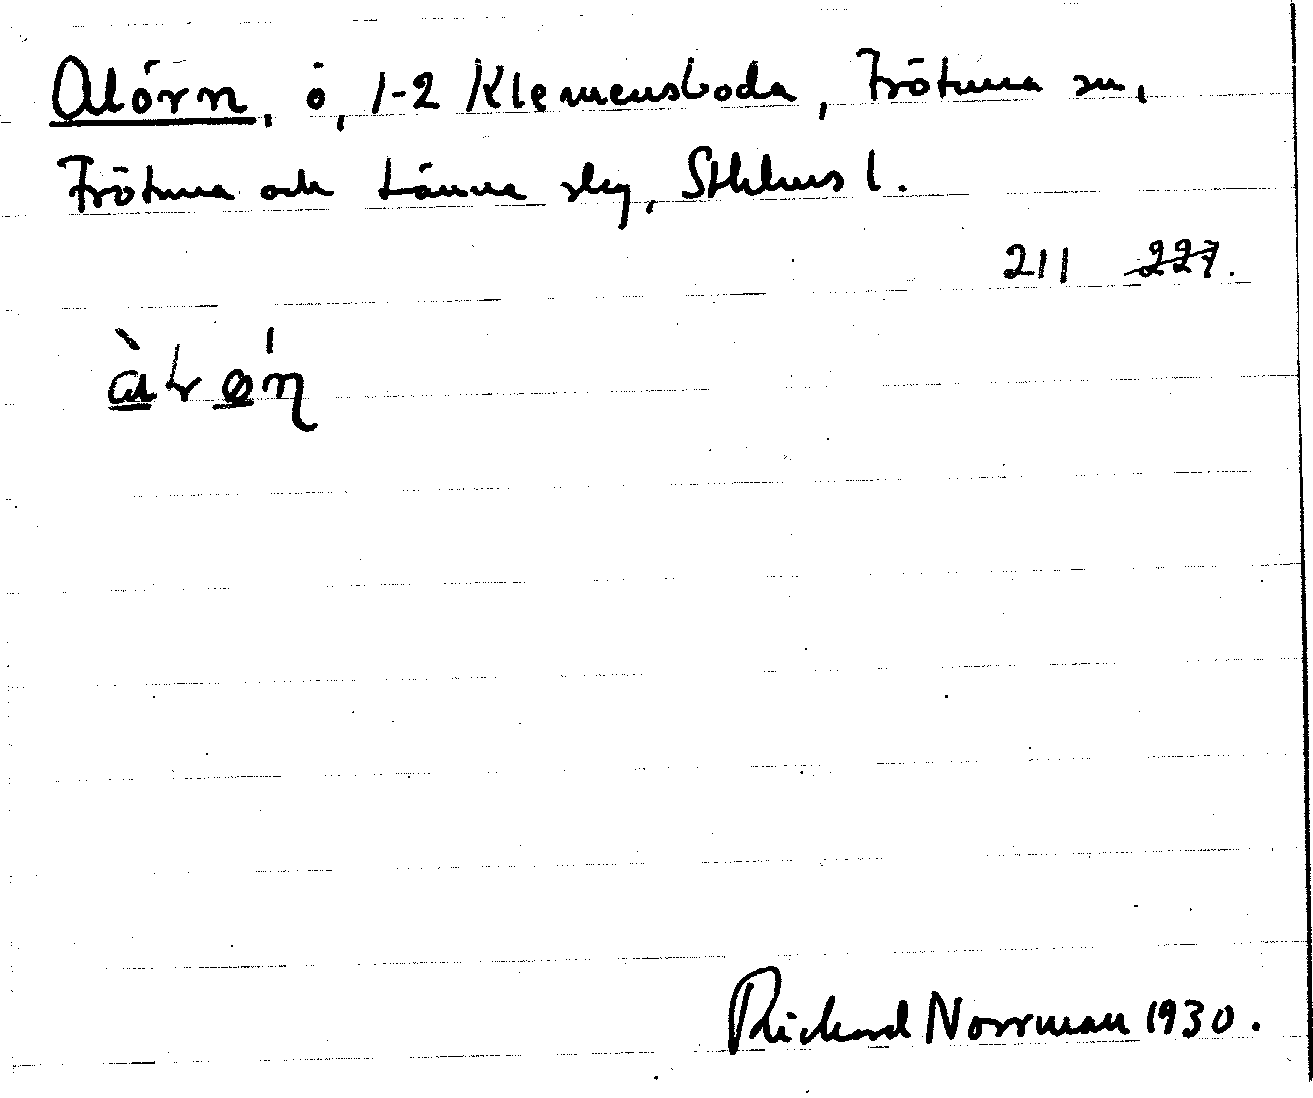 Alörn, ö, 1-2 Klemensboda, Frötuna sn,
Frötuna och Länna slg, Sthlms l.
211 227.
Richard Norrman 1930.